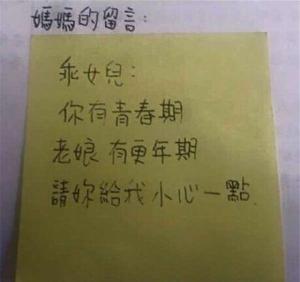 媽媽的留言:
乖女兒:
你有青春期
老娘有更年期
請妳給我小心一點